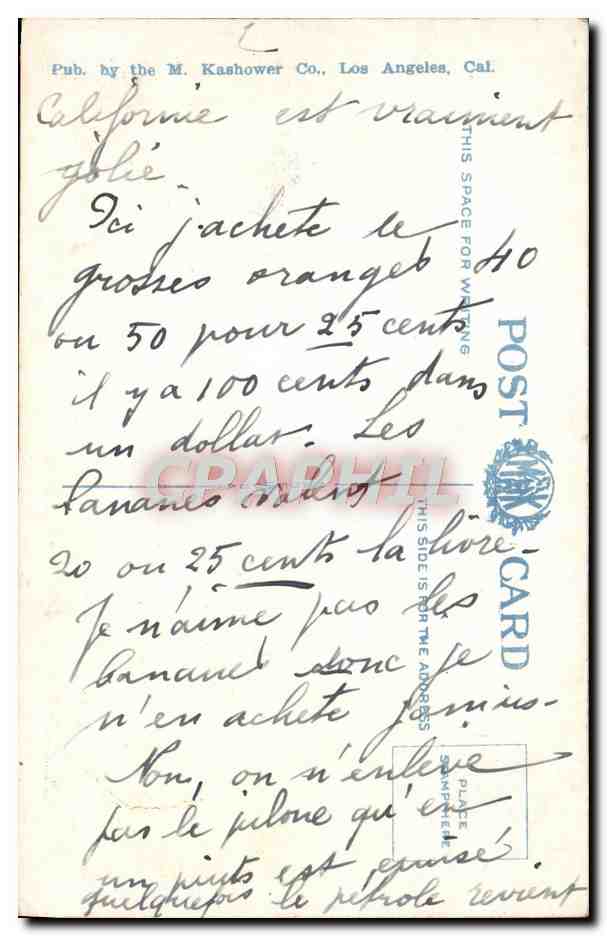 2
Pub. by the M. Kashower Co., Los Angeles, Cal.
Californie est vraiment
jolie
Ici j'achete le
grosses oranges 40
ou 50 pour 25 cents
il y a 100 cents dans
un dollar. Les
bananes valent
20 ou 25 cents la livre-
Je n'aime pas les
bananes donc je
n'en achete jamais-
Non, on n'enleve
pas le pilone qu'en
un puits est épuisé.
quelquefois le pétrole revient
THIS SPACE FOR WRITING
POST CARD
MK
THIS SIDE IS FOR THE ADDRESS
PLACE
STAMP HERE
CPAPHIL